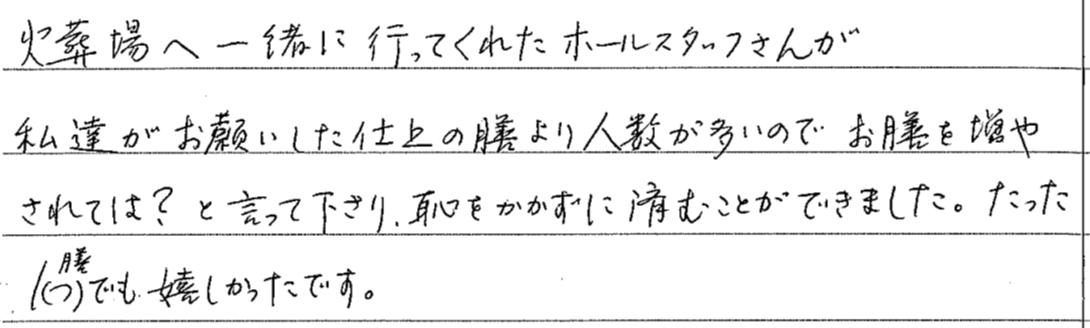 火葬場へ一緒に行ってくれたホールスタッフさんが
私達がお願いした仕上の膳より人数が多いので お膳を増や
されては？と言って下さり、恥をかかずに済むことができました。たった
1(つ)膳でも嬉しかったです。